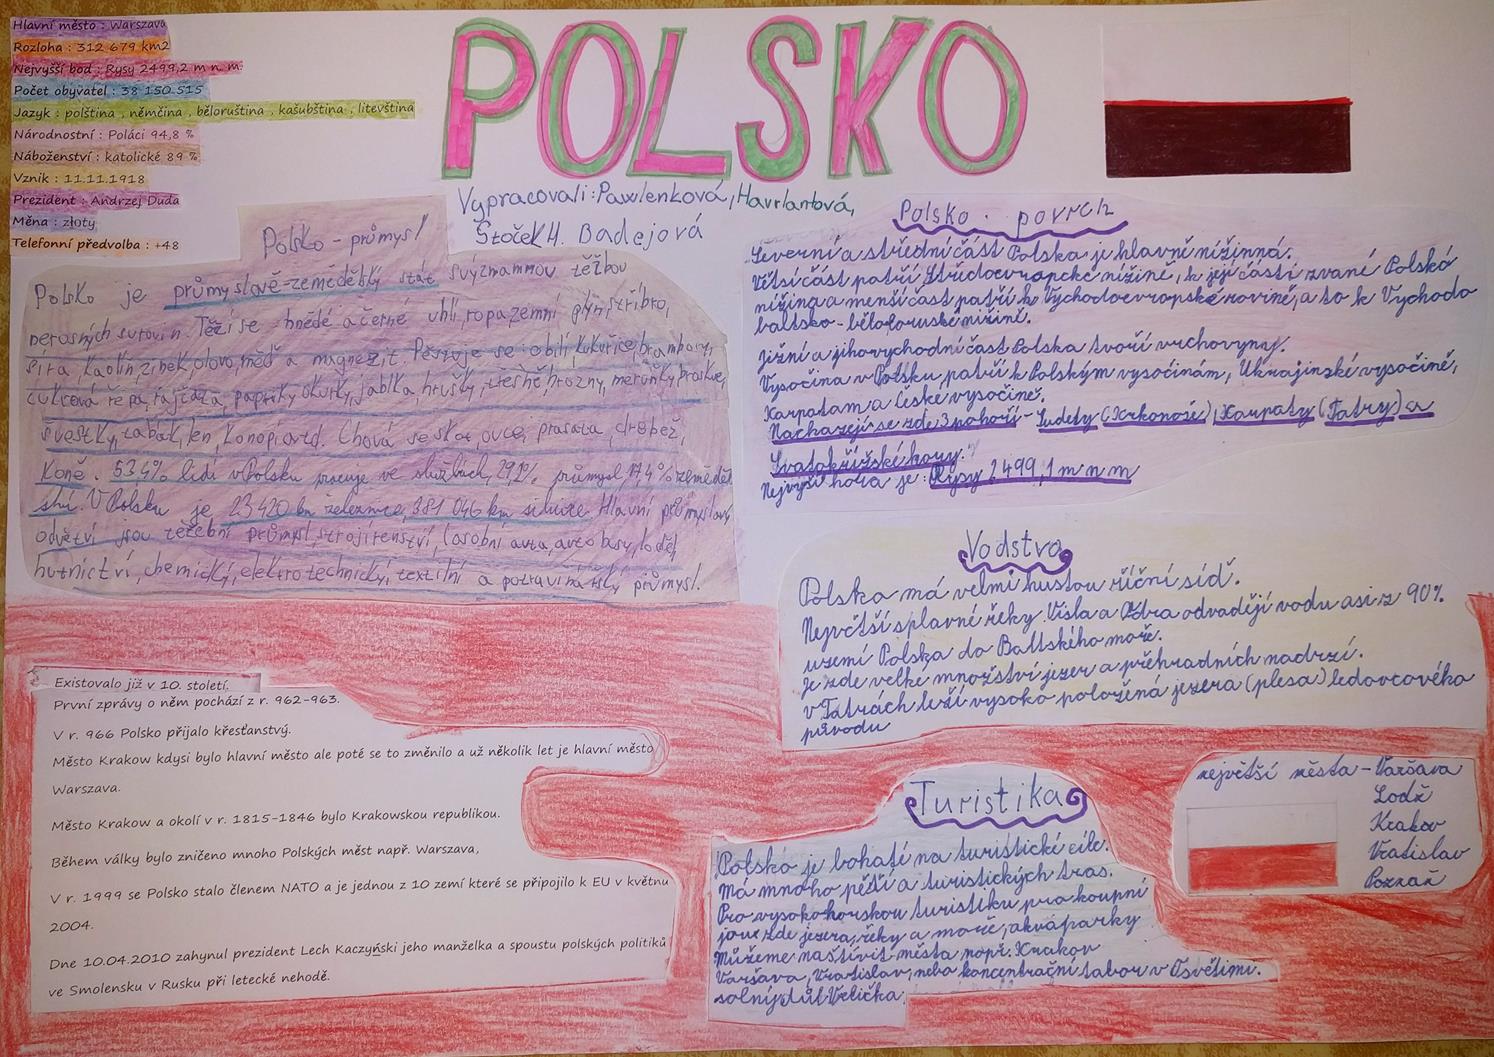 Hlavní město : Warszava
Rozloha : 312 679 km2
Nejvyšší bod : Rysy 2499,2 m n. m.
Počet obyvatel : 38 150 515
Jazyk : polština , němčina , běloruština , kašubština , litevština
Národnostní : Poláci 94,8 %
Náboženství : katolické 89 %
Vznik : 11.11.1918
Prezident : Andrzej Duda
Měna : złoty
Telefonní předvolba : +48
POLSKO
Vypracovali: Pawlenková, Havrlantová,
Štoček H. Badejová
Polsko - průmysl
Polsko je průmyslově-zemědělský stát svýznamnou těžbou
nerosných surovin. Těží se hnědé a černé uhlí, ropa, zemní plyn, stříbro,
síra, kaolín, zinek, olovo, měď a magnezit. Pěstuje se obilí, kukuřice, brambory,
cukrová řepa, rajčata, papriky, okurky, jablka, hrušky, třešně, hrozny, meruňky, broskve,
švestky, tabák, len, konopí atd. Chová se skot, ovce, prasata, drůbež,
koně. 53,4% lidí v Polsku pracuje ve službách, 29,2% průmysl, 17,4% zeměděl
ství. V Polsku je 23 420 km železnice, 381 046 km silnice. Hlavní průmyslový
odvětví jsou těžební průmysl, strojírenství, (osobní auta, autobusy, lodě),
hutnictví, chemický, elektrotechnický, textilní a potravinářský průmysl.
Polsko - povrch
Severní a střední část Polska je hlavně nížinná.
Větší část patří Středoevropské nížině, k její části zvané Polská
nížina a menší část patří k Východoevropské rovině, a to k Východo
baltsko-běloruské nížině.
Jižní a jihovychodní část Polska tvoří vrchoviny.
Vysočina v Polsku patří k Polským vysočinám, Ukrajinské vysočině,
Karpatam a České vysočině.
Nacházejí se zde 3 pohoří - Sudety (Krkonoše), Karpaty (Tatry) a
Svatokřížské hory.
Nejvyší hora je: Rysy 2 499,1 m n m
Vodstvo
Polsko má velmi hustou říční síď.
Největší splavné řeky Visla a Odra odvadějí vodu asi z 90%
uzemí Polska do Baltského moře.
Je zde velké množství jezer a přehradních nadrzí.
v Tatrách leží vysoko položená jezera (plesa) ledovcového
původu
Existovalo již v 10. století.
První zprávy o něm pochází z r. 962-963.
V r. 966 Polsko přijalo křesťanstvý.
Město Krakow kdysi bylo hlavní město ale poté se to změnilo a už několik let je hlavní město
Warszava.
Město Krakow a okolí v r. 1815-1846 bylo Krakowskou republikou.
Během války bylo zničeno mnoho Polských měst např. Warszava,
V r. 1999 se Polsko stalo členem NATO a je jednou z 10 zemí které se připojilo k EU v květnu
2004.
Dne 10.04.2010 zahynul prezident Lech Kaczyński jeho manželka a spoustu polských politiků
ve Smolensku v Rusku při letecké nehodě.
Turistika
Polsko je bohatí na turistické cíle.
Má mnoho pěší a turistických tras.
Pro vysokohorskou turistiku pro koupní
jsou zde jezera, řeky a moře, akváparky
Můžeme naštívit města např. Krakov
Varšava, Vratislav, nebo koncentrační tabor v Osvětimi.
solný důl Velička.
největší města - Varšava
Lodž
Krakov
Vratislav
Poznaň